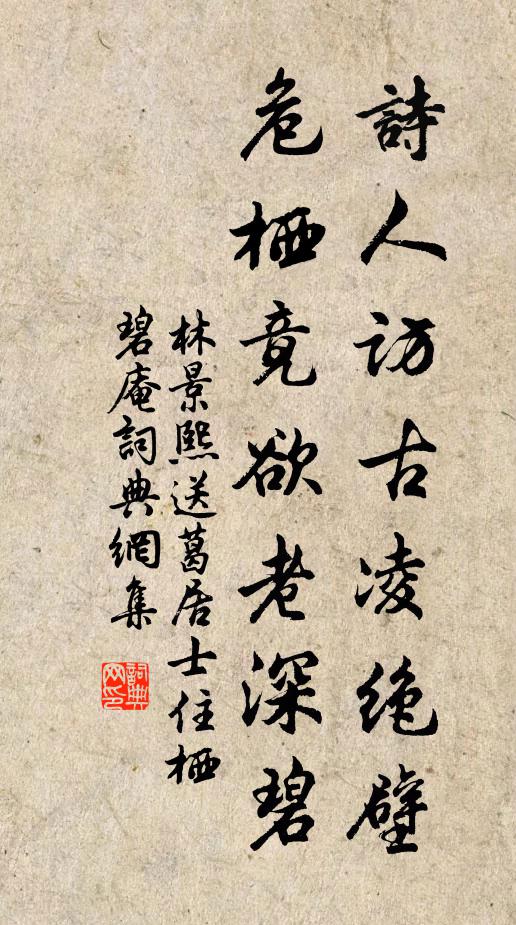 詩人訪古凌絶壁
危栖竟欲老深碧
林景熙送葛居士住栖
碧庵詞典網集
詞典网印